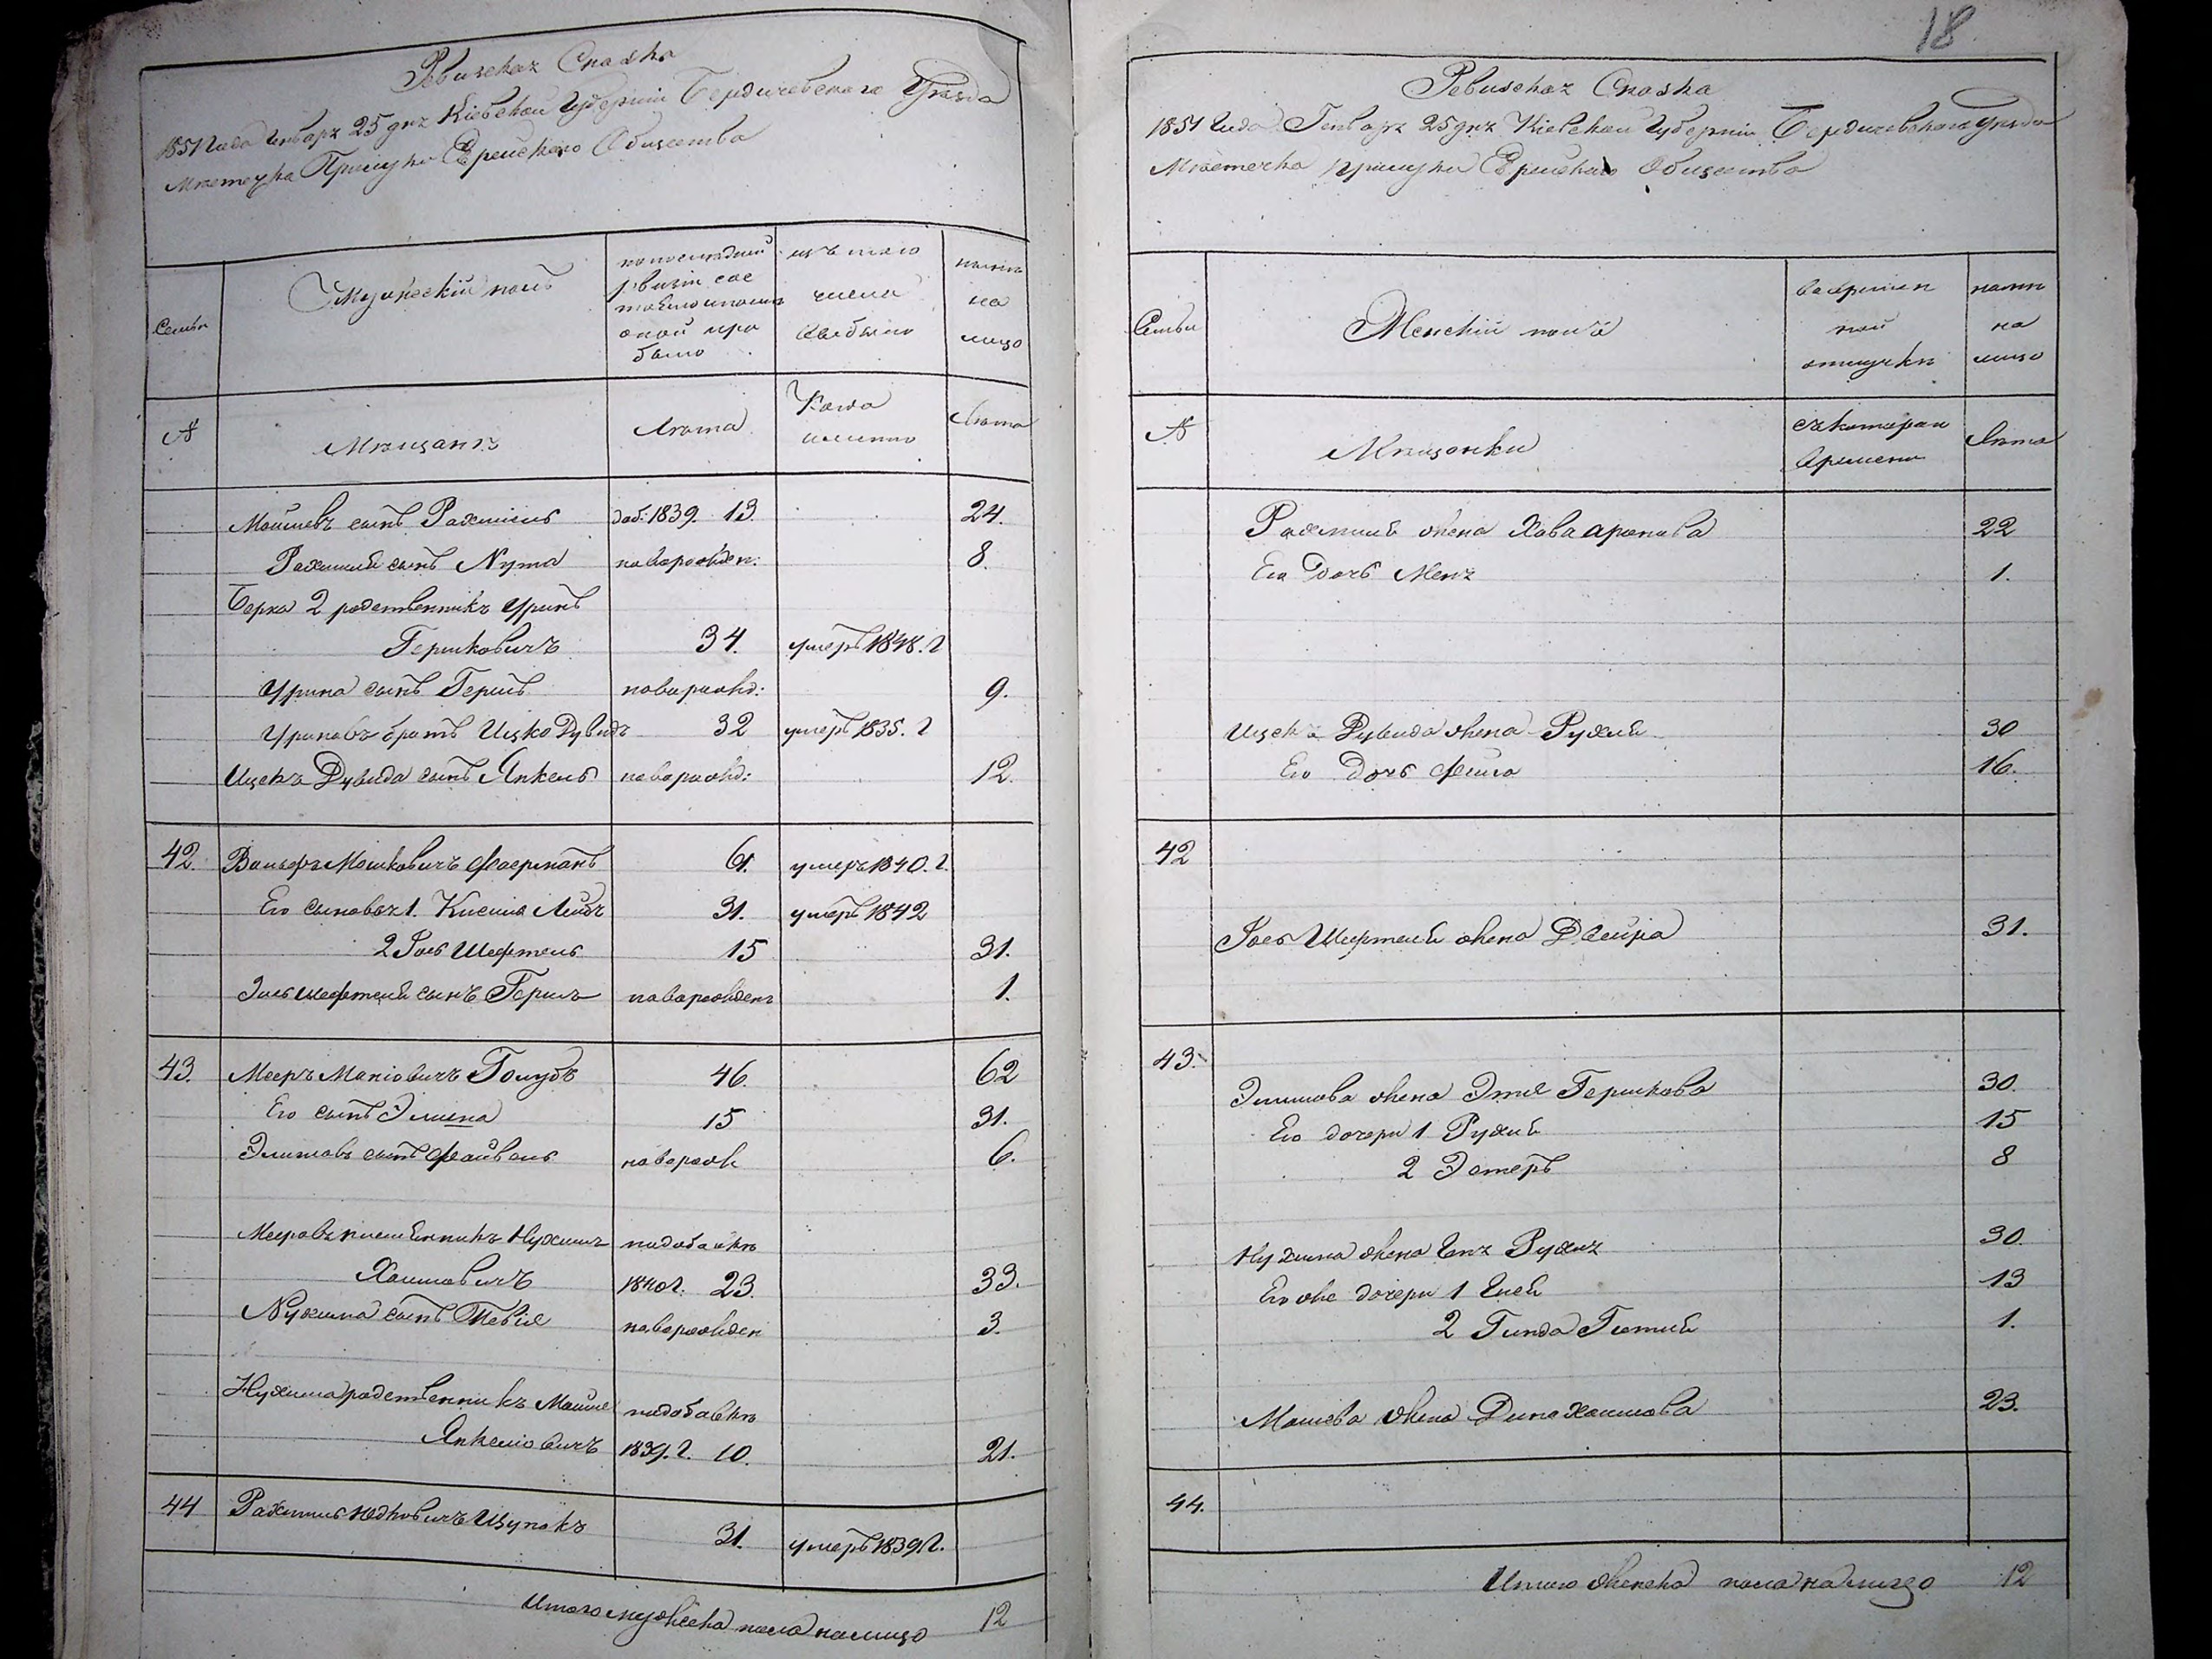 Ревизская Сказка
1851 Года Генваря 25 дня Кіевской Губерніи Бердичевского Уѣзда
Мѣстечка Прилуки Еврейского Общества
Семьи
Мужескій полъ
по последней
ревизіи сос
тояло и после
оной при
было
изъ того
числа
выбыло
нынѣ
на
лицо
№
Мѣщанъ
Лѣта
Когда
именно
Лѣта
Мошковъ сынъ Рахмиль доб: 1839. 13. 24.
Рахмиля сынъ Нута новорожден: 8.
Берка 2 родственникъ Уринъ
Гершковичъ 34. умеръ 1848. г
Урина сынъ Гершъ новорожд: 9.
Уриновъ братъ Ицко Дувидъ 32 умеръ 1835. г
Ицка Дувида сынъ Янкель новорожд: 12.
42. Вольфъ Мошковичъ Фаерманъ 61. умеръ 1840. г.
Его сыновья 1. Кисиль Лейбъ 31. умеръ 1842
2 Іоль Шефтель 15 31.
Іоль Шефтеля сынъ Гершъ новорожденъ 1.
43. Мееръ Маніовичъ Голубъ 46. 62
Его сынъ Элима 15 31.
Элимовъ сынъ Файвель новорож 6.
Мееровъ племенникъ Нухимъ по добавкѣ
Хаимовичъ 1840 г. 23. 33.
Нухима сынъ Тевіе новорожден 3.
Нухима родственникъ Мойше по добавкѣ
Янкеліовичъ 1839. г. 10. 21.
44 Рахмиль Юдковичъ Щупакъ 31. умеръ 1839 г.
Итого мужеска пола на лицо 12
18
Ревизская Сказка
1851 Года Генваря 25 дня Кіевской Губерніи Бердичевского Уѣзда
Мѣстечка Прилуки Еврейского Общества
Семьи
Женскій полъ
во времен
ной
отлучкѣ
нынѣ
на
лицо
№
Мѣщанки
съ которого
времени
Лѣта
Рахмиля жена Хава Аронова 22
Его дочь Меня 1.
Ицка Дувида жена Рухля 30
Его дочь Фейга 16.
42
Іоль Шефтеля жена Двейра 31.
43.
Элимова жена Этіе Гершкова 30.
Его дочери 1 Рухля 15
2 Эстеръ 8
Нухима жена Рухля 30.
Его же дочери 1 13
2 Гинда Гитля 1.
Мошева жена Дина Хаимова 23.
44.
Итого женска пола на лицо 12